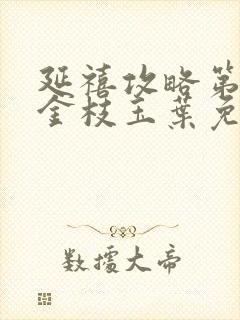 延禧攻略第
金枝玉葉免
數據大帝